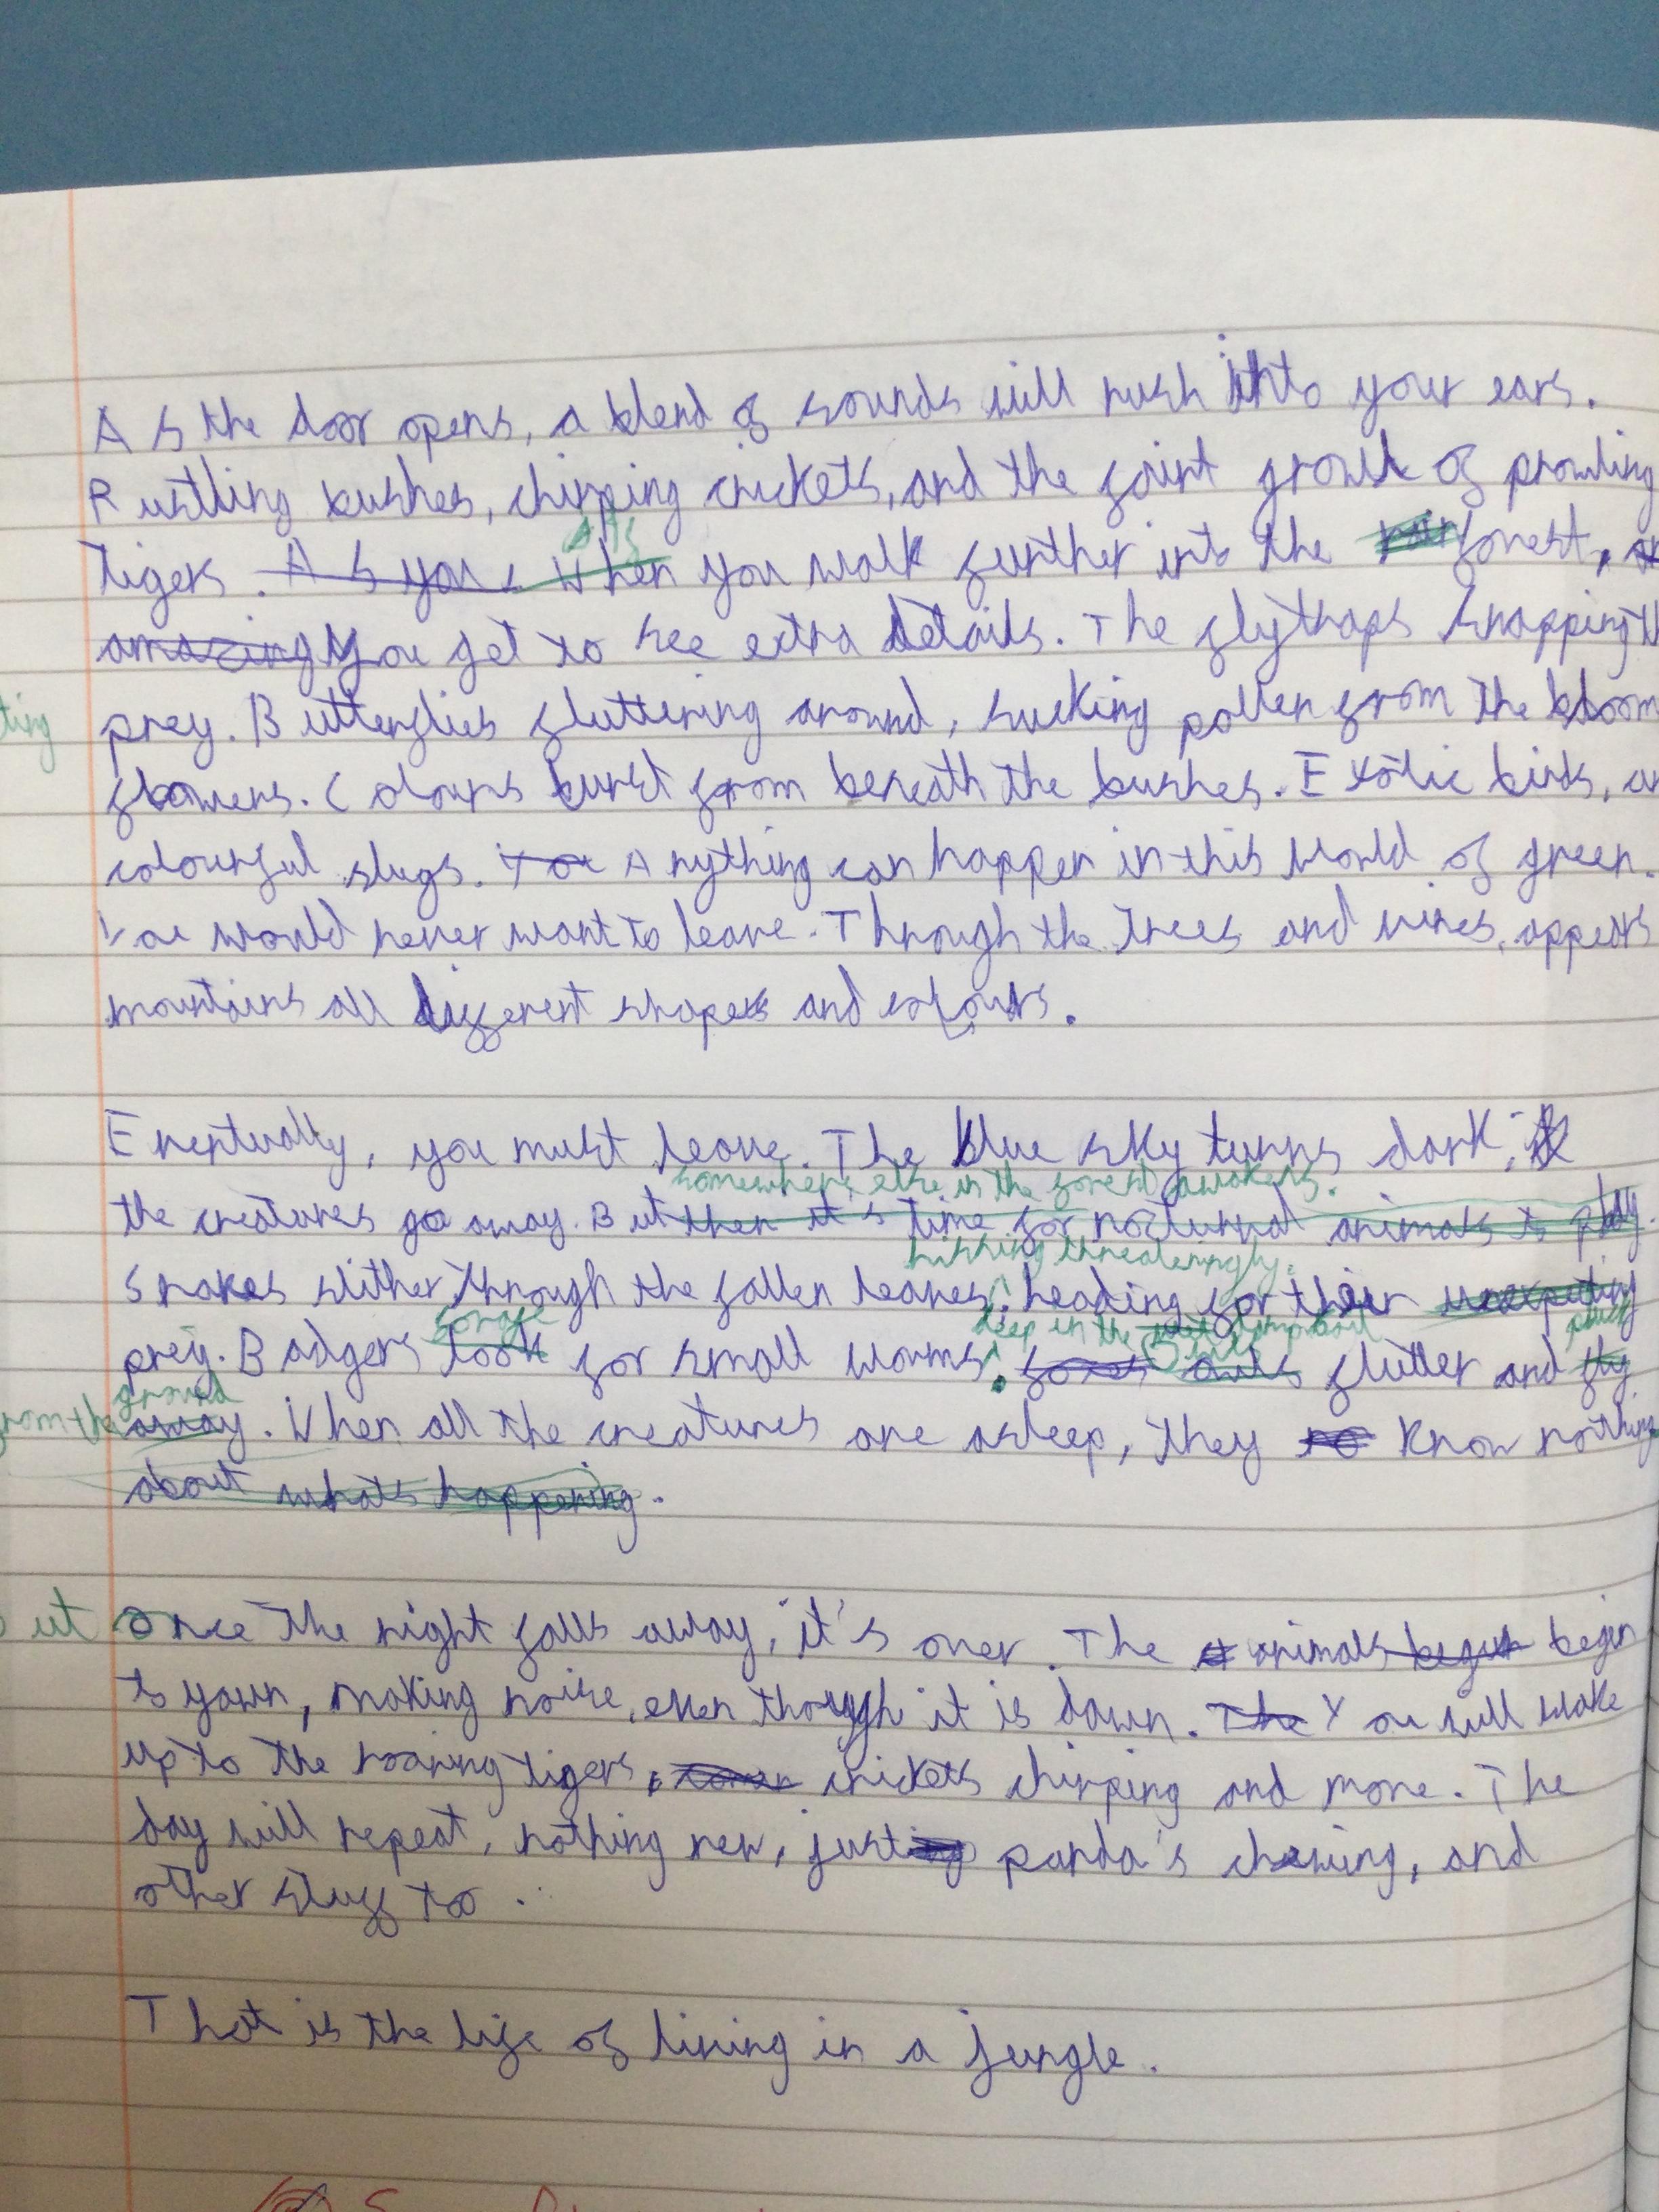 As the door opens, a blend of sounds will rush into your ears.
Rustling bushes, chirping crickets, and the faint growl of prowling
tigers. As you When you walk further into the forest,
As
amazing you get to see extra details. The flytraps snapping
ting prey. Butterflies fluttering around, sucking pollen from the bloom
flowers. Colours burst from beneath the bushes. Exotic birds,
colourful slugs. You Anything can happen in this world of green.
You would never want to leave. Through the trees and vines, appears
mountains all different shapes and colours.
Eventually, you must leave. The blue sky turns dark,
somewhere else in the forest awakens.
the creatures go away. But then it's time for nocturnal animals to play.
hissing threateningly.
Snakes slither through the fallen leaves, heading for their unexpecting
forage deep in the
prey. Badgers look for small worms. foxes owls flutter and fly
from the ground
away. When all the creatures are asleep, they no know nothing
about whats happening.
ut Once the night falls away, it's over. The animals begin begin
to yawn, making noise, even though it is dawn. The You will wake
up to the roaring tigers, crickets chirping and more. The
day will repeat, nothing new, just panda's chewing, and
other stuff too.
That is the life of living in a jungle.